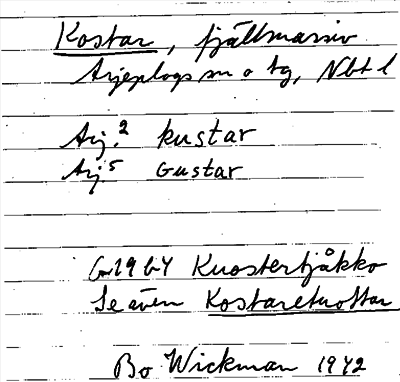 Kostar, fjällmassiv
Arjeplogs sn o tg, Nbt l
Arj.2 kustar
Arj.5 Gustar
Kuostertjåkko
Se även Kostaretuottar
Bo Wickman 1942